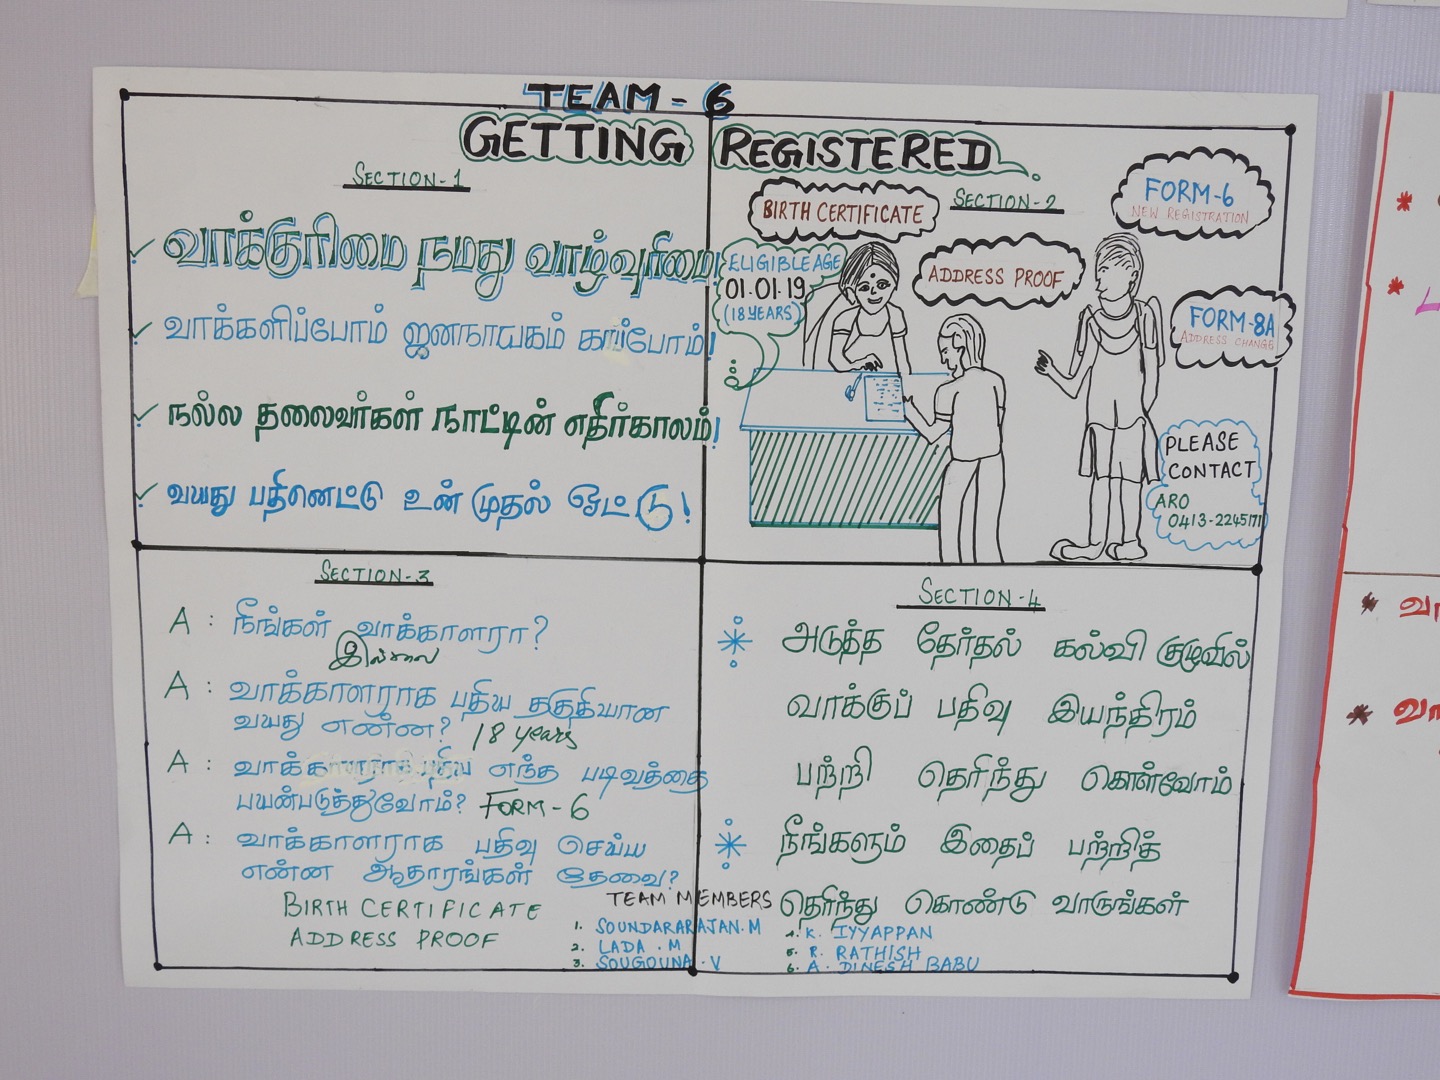 TEAM - 6
GETTING REGISTERED
SECTION-1
வாக்குரிமை நமது வாழ்வுரிமை!
வாக்களிப்போம் ஜனநாயகம் காப்போம்!
நல்ல தலைவர்கள் நாட்டின் எதிர்காலம்!
வயது பதினெட்டு உன் முதல் ஓட்டு!
SECTION-2
BIRTH CERTIFICATE
ELIGIBLE AGE
01.01.19
(18 YEARS)
ADDRESS PROOF
FORM-6
NEW REGISTRATION
FORM-8A
ADDRESS CHANGE
PLEASE
CONTACT
ARO
0413-2245171
SECTION-3
A : நீங்கள் வாக்காளரா?
இல்லை
A : வாக்காளராக பதிய தகுதியான
வயது என்ன? 18 years
A : வாக்காளராக பதிய எந்த படிவத்தை
பயன்படுத்துவோம்? FORM - 6
A : வாக்காளராக பதிவு செய்ய
என்ன ஆதாரங்கள் தேவை?
BIRTH CERTIFICATE
ADDRESS PROOF
SECTION-4
அடுத்த தேர்தல் கல்வி குழுவில்
வாக்குப் பதிவு இயந்திரம்
பற்றி தெரிந்து கொள்வோம்
நீங்களும் இதைப் பற்றித்
தெரிந்து கொண்டு வாருங்கள்
TEAM MEMBERS
1. SOUNDARARAJAN.M
2. LADA . M
3. SOUGOUNA . V
4. K. IYYAPPAN
5. R. RATHISH
6. A. DINESH BABU